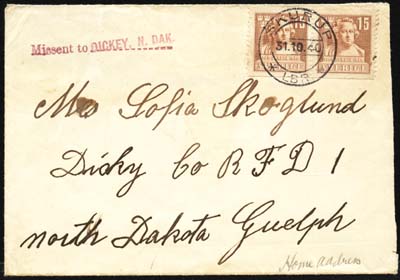 Missent to DICKEY, N. DAK.
SKURUP
31.10.40
* LBR
15
SVERIGE
Mrs Sofia Skoglund
Dicky Co R F D 1
north Dakota Guelph
Home address